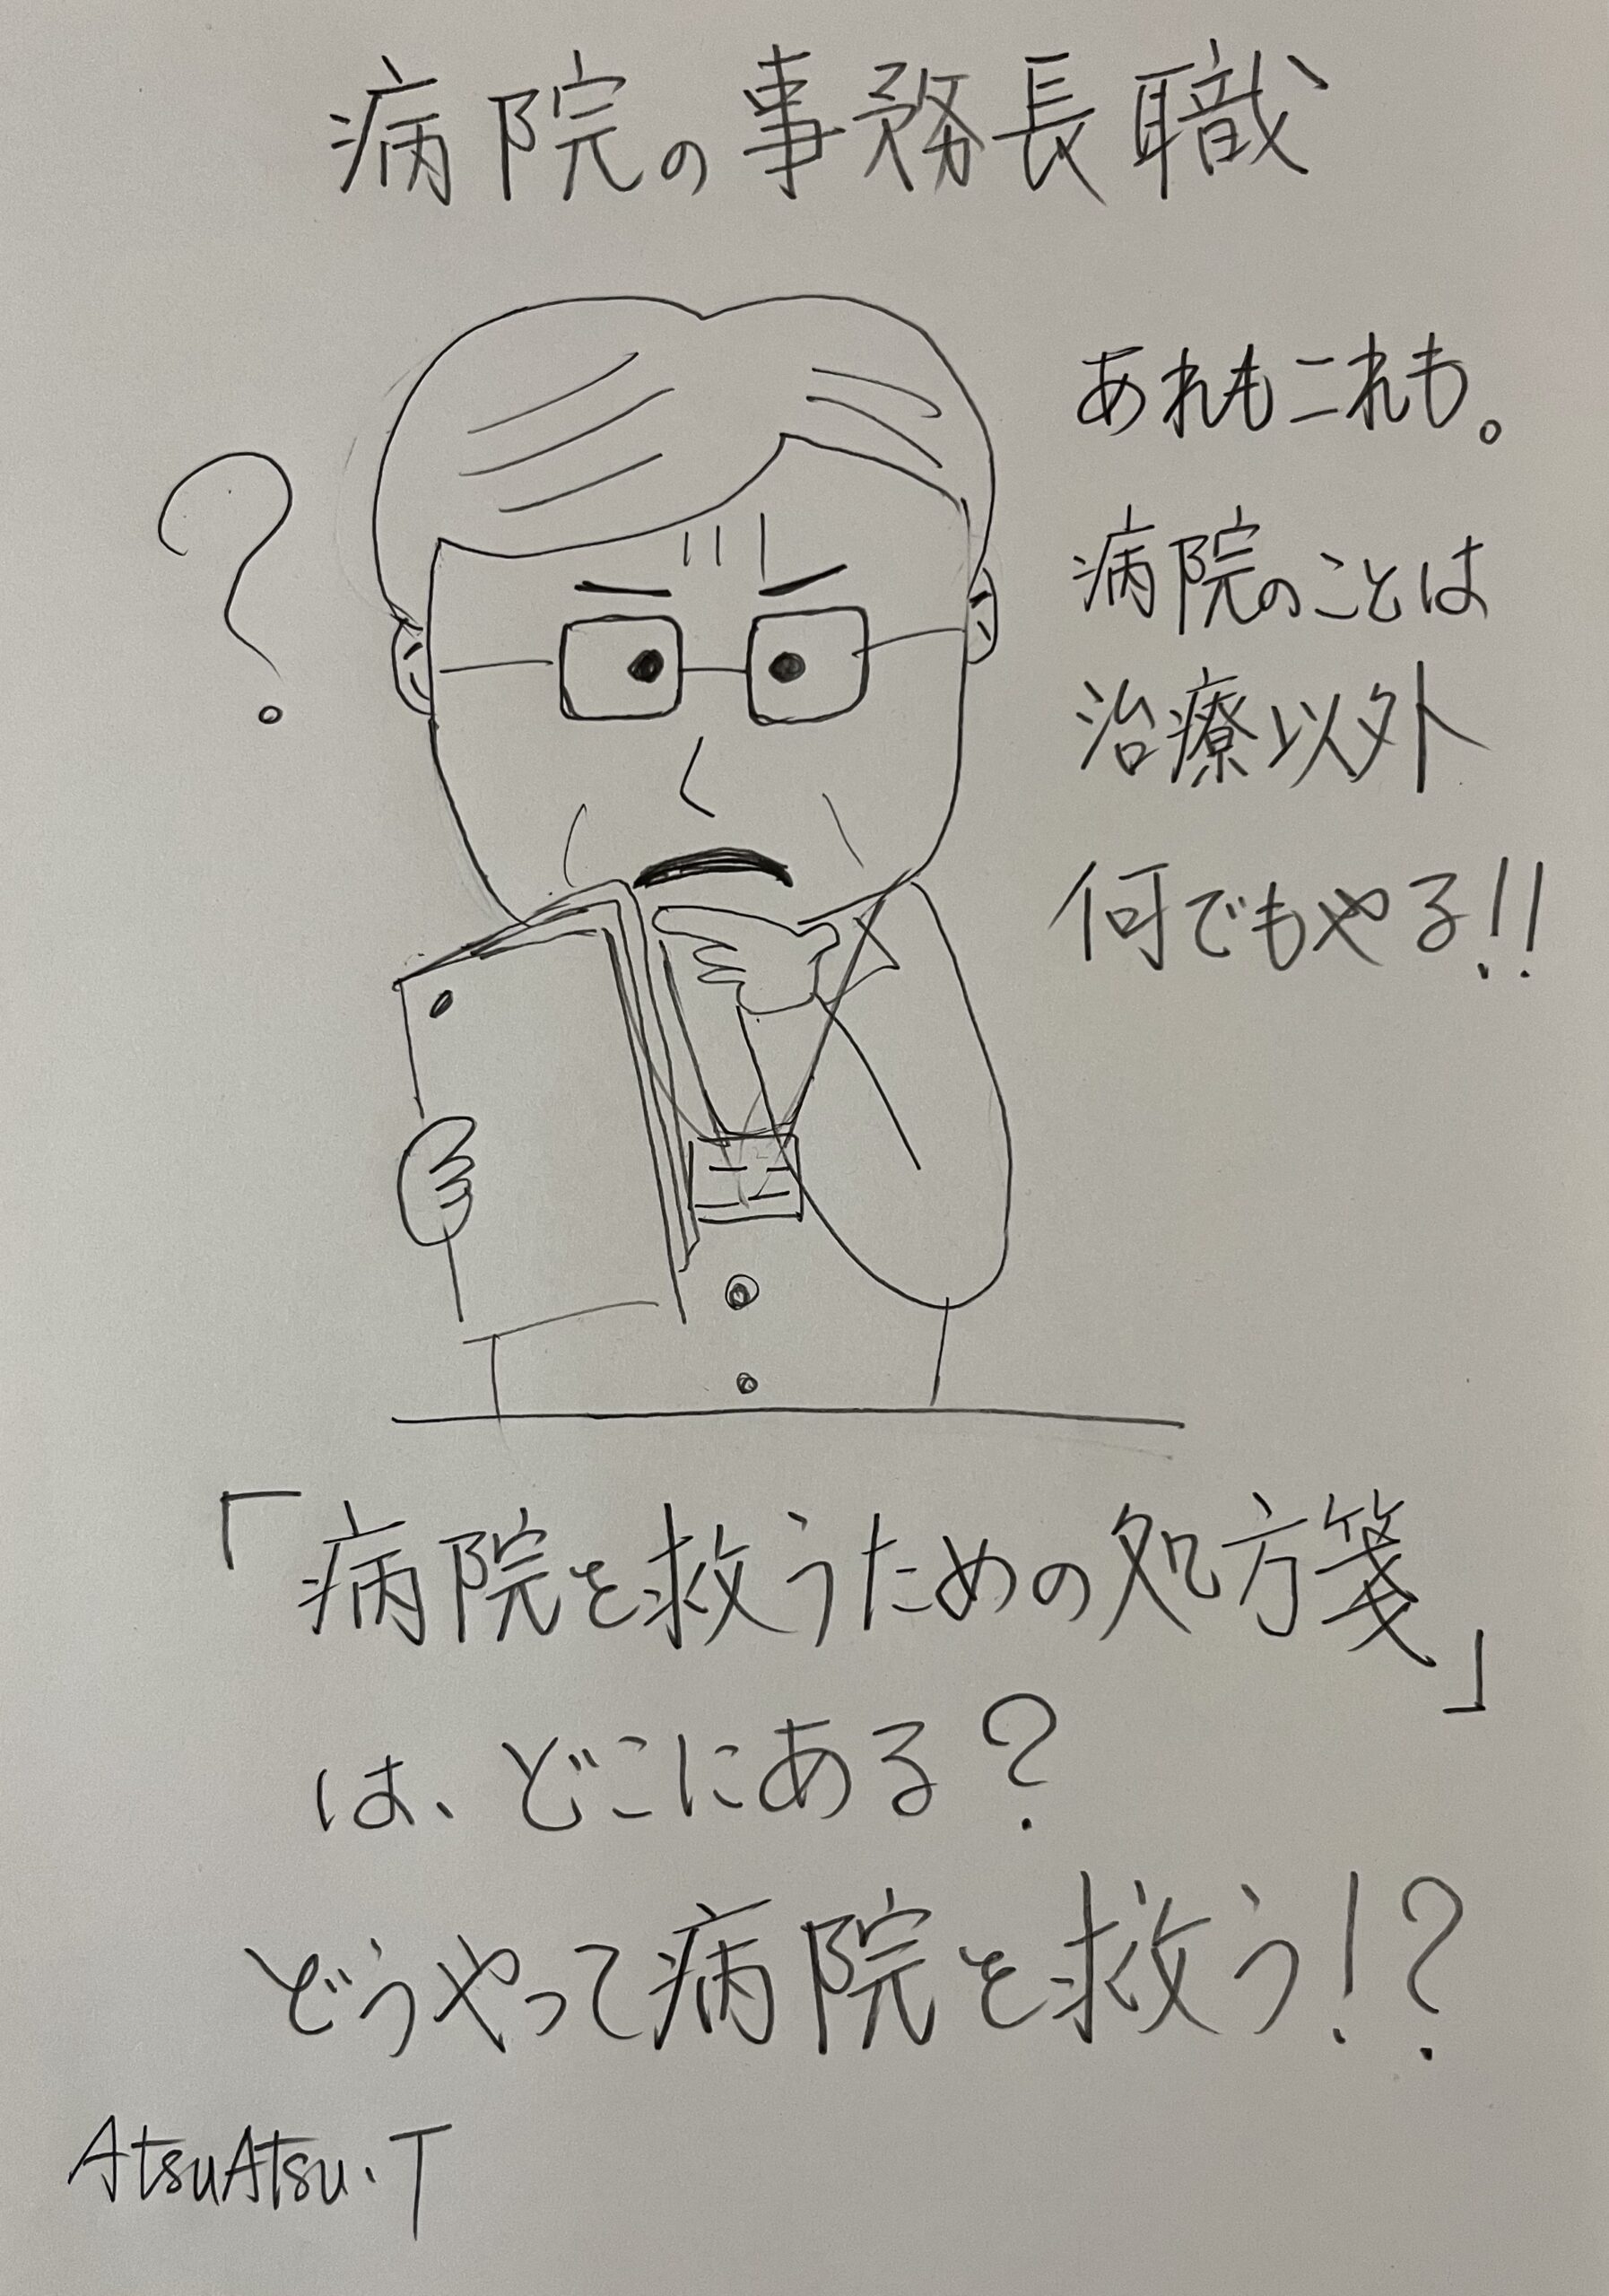 病院の事務長職
?
あれもこれも。
病院のことは
治療以外
何でもやる!!
「病院を救うための処方箋」
は、どこにある?
どうやって病院を救う!?
AtsuAtsu.T